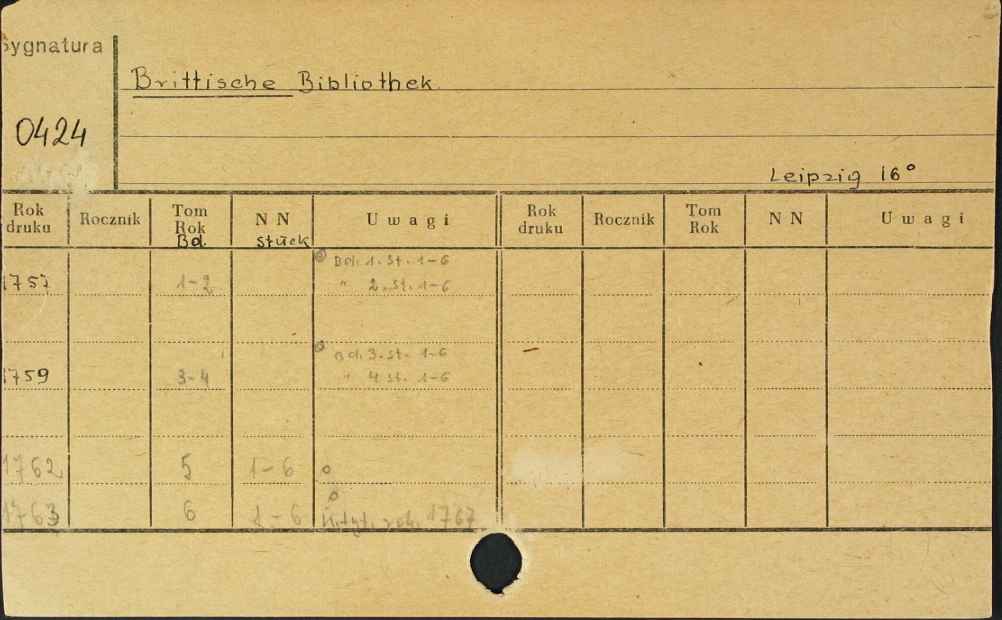 Sygnatura
Brittische Bibliothek
0424
Leipzig 16°
Rok druku Rocznik Tom Rok Bd. N N Stück Uwagi Rok druku Rocznik Tom Rok N N Uwagi
1757 1-2 Bd. 1. St. 1-6
" 2. St. 1-6
Bd. 3. St. 1-6
1759 3-4 " 4 St. 1-6
1762 5 1-6
1763 6 1-6 1767